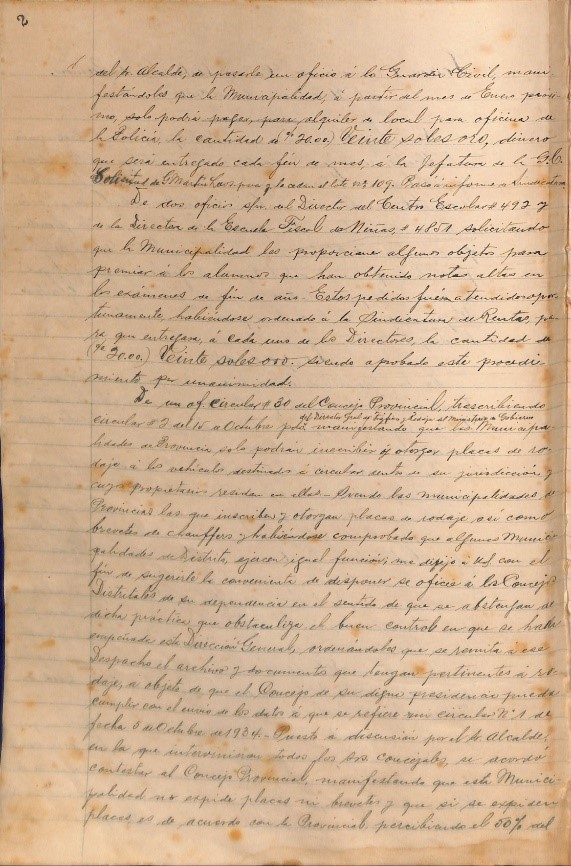 2
del Sr. Alcalde, de pasarle un oficio á la Guardia Civil, mani-
festándoles que la Municipalidad, á partir del mes de Enero próxi-
mo, solo podrá pagar, para alquiler de local para oficina de
la Policía, la cantidad de 20.00) Veinte soles oro, dinero
que será entregado cada fin de mes, á la Jefatura de la G.C.
Solicitud de G. Martin para que le cedan el lote nº 109. Pasó á informe á Sindicatura
De dos oficios s/n. del Director del Centro Escolar # 492 y
de la Directora de la Escuela Fiscal de Niñas, # 4851 solicitando
que la Municipalidad les proporcione algunos objetos para
premiar á los alumnos que han obtenido notas altas en
los exámenes de fin de año. Estos pedidos fueron atendidos opor-
tunamente, habiéndose ordenado á la Sindicatura de Rentas, pa-
ra que entregara, a cada uno de los Directores, la cantidad de
20.00) Veinte soles oro. siendo aprobado este procedi-
miento por unanimidad.
De un of. circular # 30 del Concejo Provincial, trascribiendo
del Director Gral de Tráfico y Rodaje del Ministerio de Gobierno
circular # 2 del de Octubre pdo, manifestando que las Municipa-
lidades de Provincia solo podrán inscribir y otorgar placas de ro-
daje á los vehículos destinados á circular dentro de su jurisdicción y
cuyos propietarios residan en ellas - Siendo las municipalidades de
Provincias las que inscriben y otorgan placas de rodaje así como
brevetes de chauffers y habiéndose comprobado que algunas Munici-
palidades de Distrito, ejercen igual función; me dirijo a Ud con el
fin de sugerirle la conveniencia de disponer se oficie á los Concejos
Distritales de su dependencia en el sentido de que se abstengan de
dicha práctica que obstaculiza el buen control en que se halla
empeñada esta Dirección General, ordenándoles que se remita á ese
Despacho el archivo y documentos que tengan pertinentes á ro-
daje, a objeto de que el Concejo de su digna presidencia pueda
cumplir con el envío de los datos á que se refiere mi circular Nº 1 de
fecha 5 de Octubre de 1934 - Puesto á discusión por el Sr. Alcalde,
en la que intervinieron todos los Srs concejales, se acordó
contestar al Concejo Provincial, manifestando que esta Munici-
palidad no expide placas ni brevetes y que si se expiden
placas, es de acuerdo con la Provincial. percibiendo el 50% del